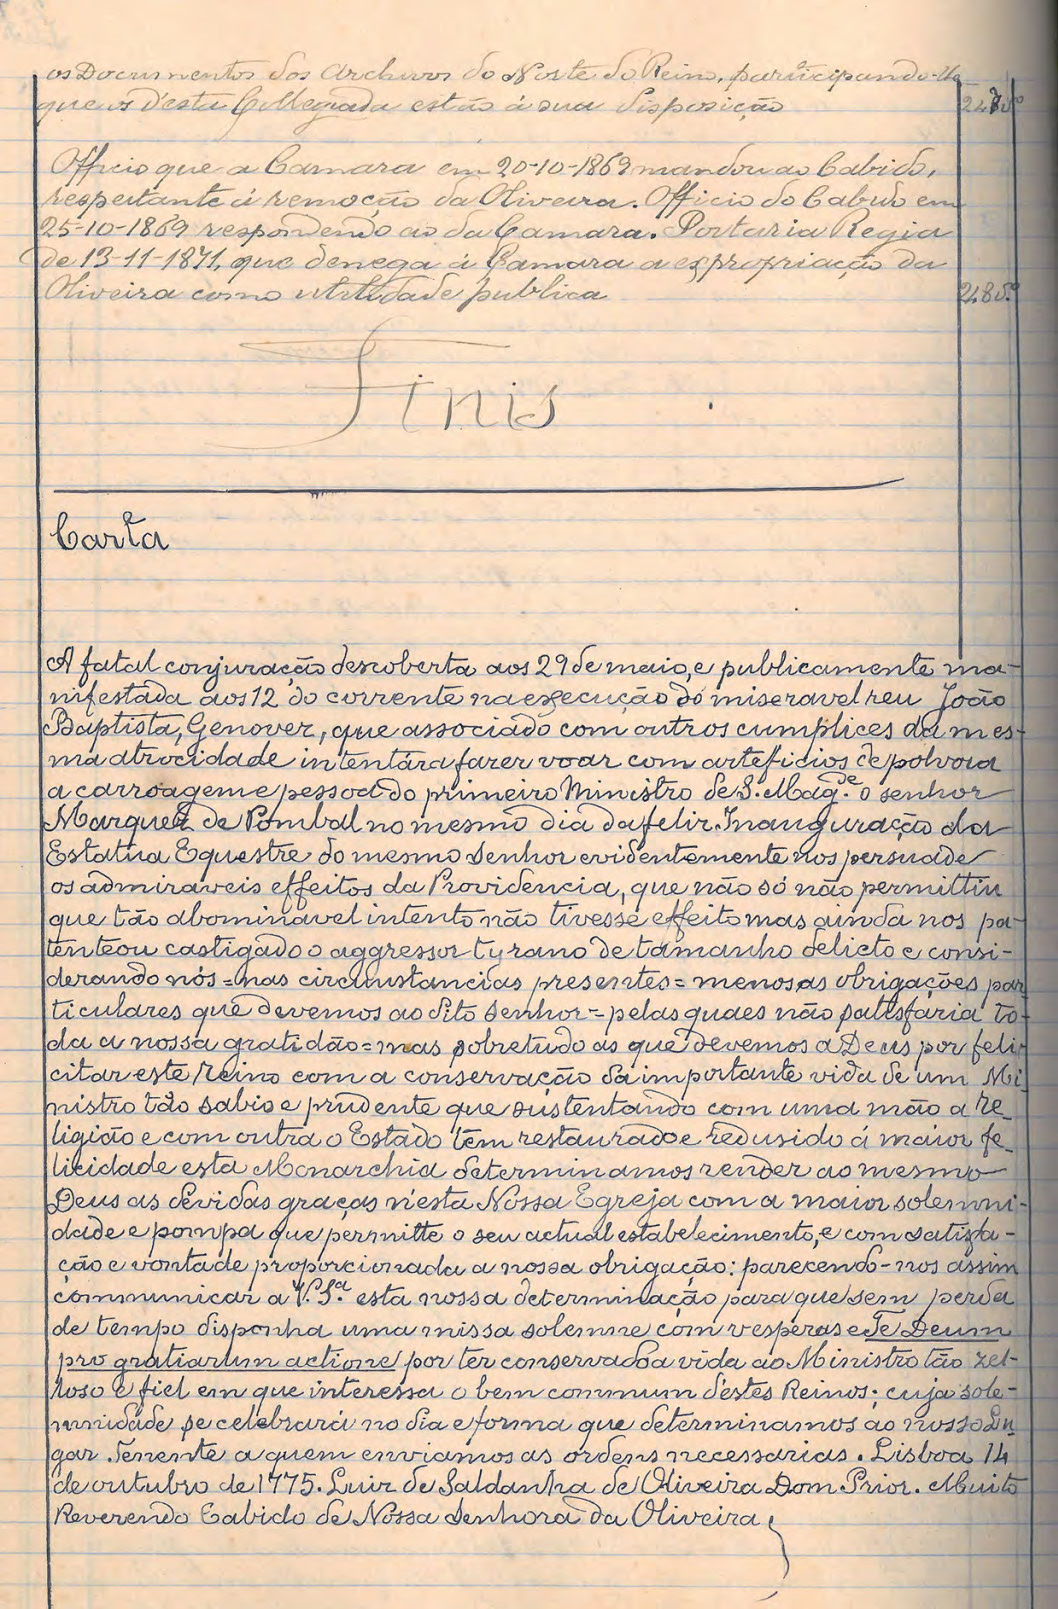 os Documentos dos Archivos do Norte do Reino, participando-lhe
que os d'esta Collegiada estão á sua disposição 247 v.º
Officio que a Camara em 20-10-1869 mandou ao Cabido,
respeitante á remoção da Oliveira. Officio do Cabido em
25-10-1869 respondendo ao da Camara. Portaria Regia
de 13-11-1871, que denega á Camara a expropriação da
Oliveira como utilidade publica 248 v.º
Finis
Carta
A fatal conjuração descoberta aos 29 de maio, e publicamente ma-
nifestada aos 12 do corrente na execução do miseravel reu João
Baptista, Genover, que associado com outros cumplices da mes-
ma atrocidade intentára fazer voar com arteficios de polvora
a carroagem e pessoa do primeiro Ministro de S. Mag.de o senhor
Marquez de Pombal no mesmo dia da felir Inauguração da
Estatua Equestre do mesmo senhor evidentemente nos persuade
os admiraveis effeitos da Providencia, que não só não permittiu
que tão abominavel intento não tivesse effeito mas ainda nos pa-
tenteou castigado o aggressor tyrano de tamanho delicto e consi-
derando nós = nas circumstancias presentes = menos as obrigações par
ticulares que devemos ao dito senhor = pelas quaes não satisfaria to-
da a nossa gratidão = mas sobretudo as que devemos a Deus por feli-
citar este reino com a conservação da importante vida de um Mi
nistro tão sabio e prudente que sustentando com uma mão a re_
ligião e com outra o Estado tem restaurado e redusido á maior fe_
licidade esta Monarchia determinamos render ao mesmo
Deus as devidas graças n'esta Nossa Egreja com a maior solemni-
dade e pompa que permitte o seu actual estabelecimento, e com satisfa-
ção e vontade proporcionada a nossa obrigação: parecendo-nos assim
communicar a V. S.ª esta nossa determinação para que sem perda
de tempo disponha uma missa solemne com vesperas e Te Deum
pro gratiarum actione por ter conservado a vida ao Ministro tão zel-
loso e fiel em que interessa o bem commum d'estes Reinos; cuja sole-
mnidade se celebrará no dia e forma que determinamos ao nosso Lu
gar Tenente a quem enviamos as ordens necessarias. Lisboa 14
de outubro de 1775. Luiz de Saldanha de Oliveira Dom Prior. Muito
Reverendo Cabido de Nossa Senhora da Oliveira